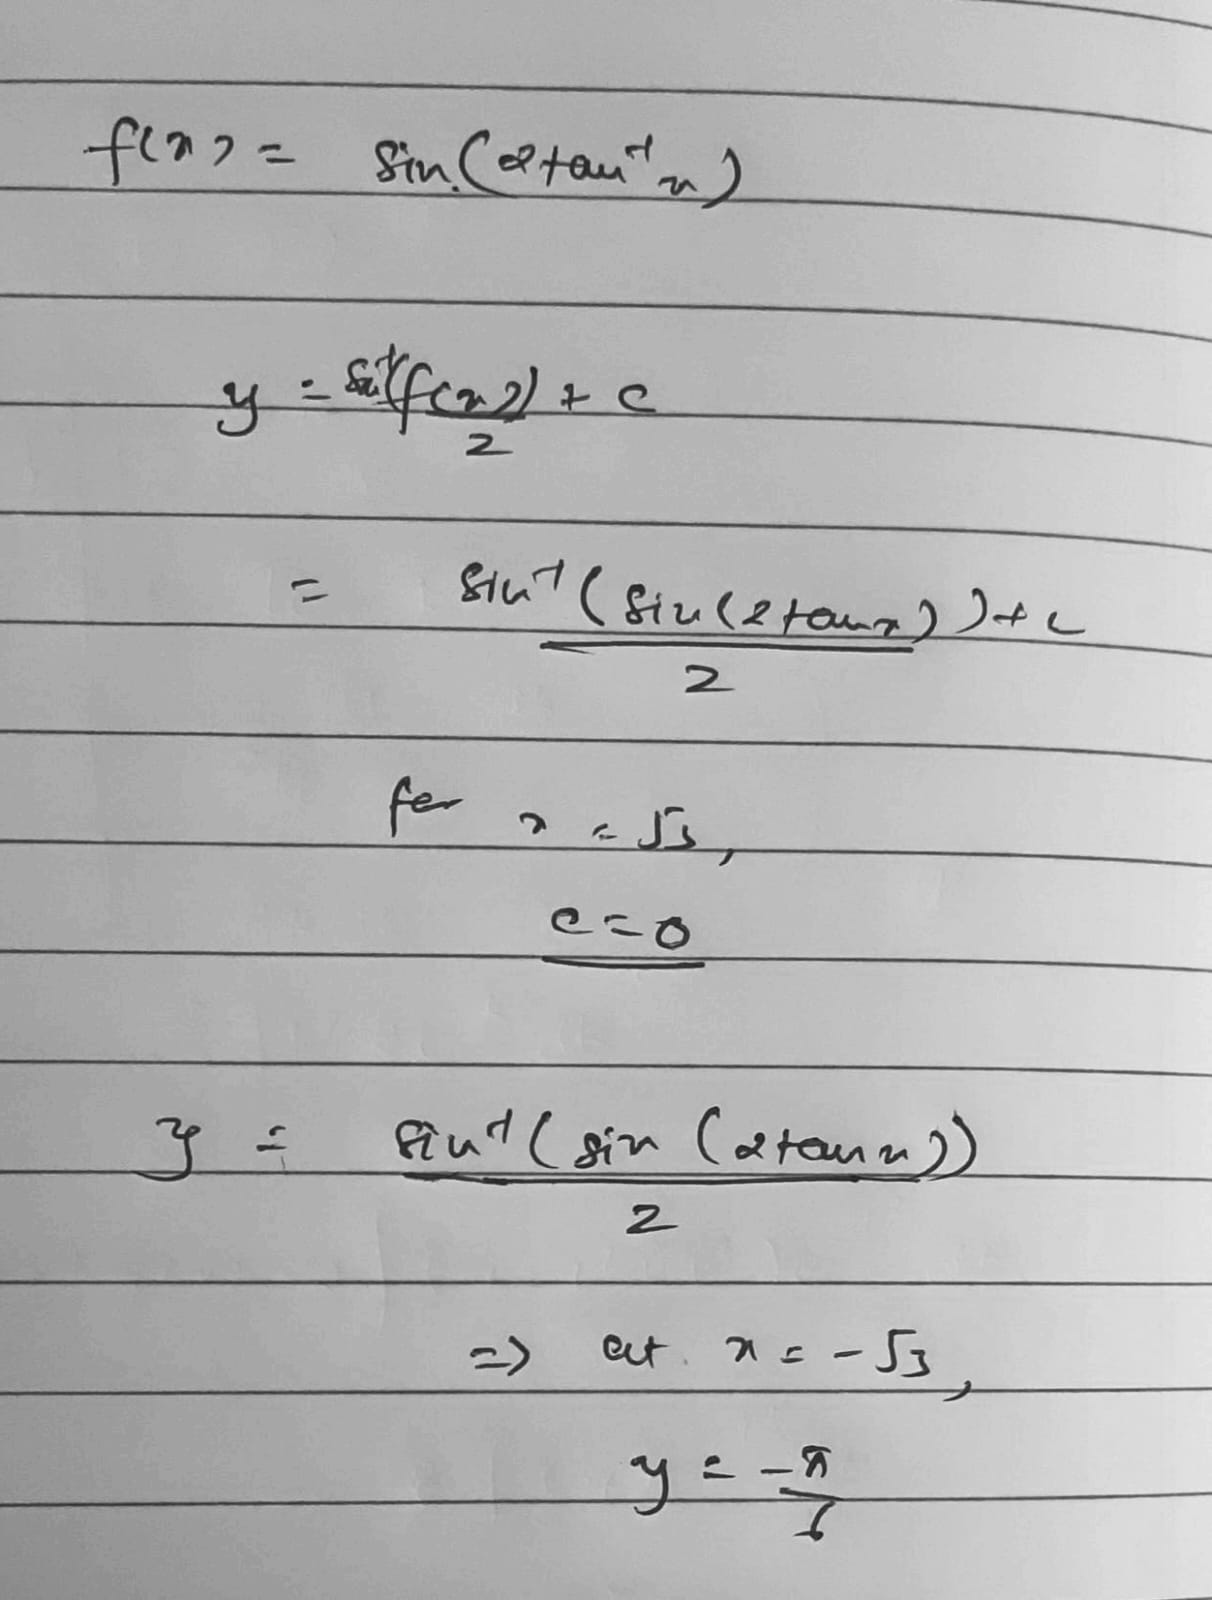 f(x) = sin(2tan⁻¹x)
y = sin⁻¹(f(x))/2 + c
= sin⁻¹(sin(2tanx))/2 + c
for x = √3,
c = 0
y = sin⁻¹(sin(2tanx))/2
=> at x = -√3,
y = -π/6